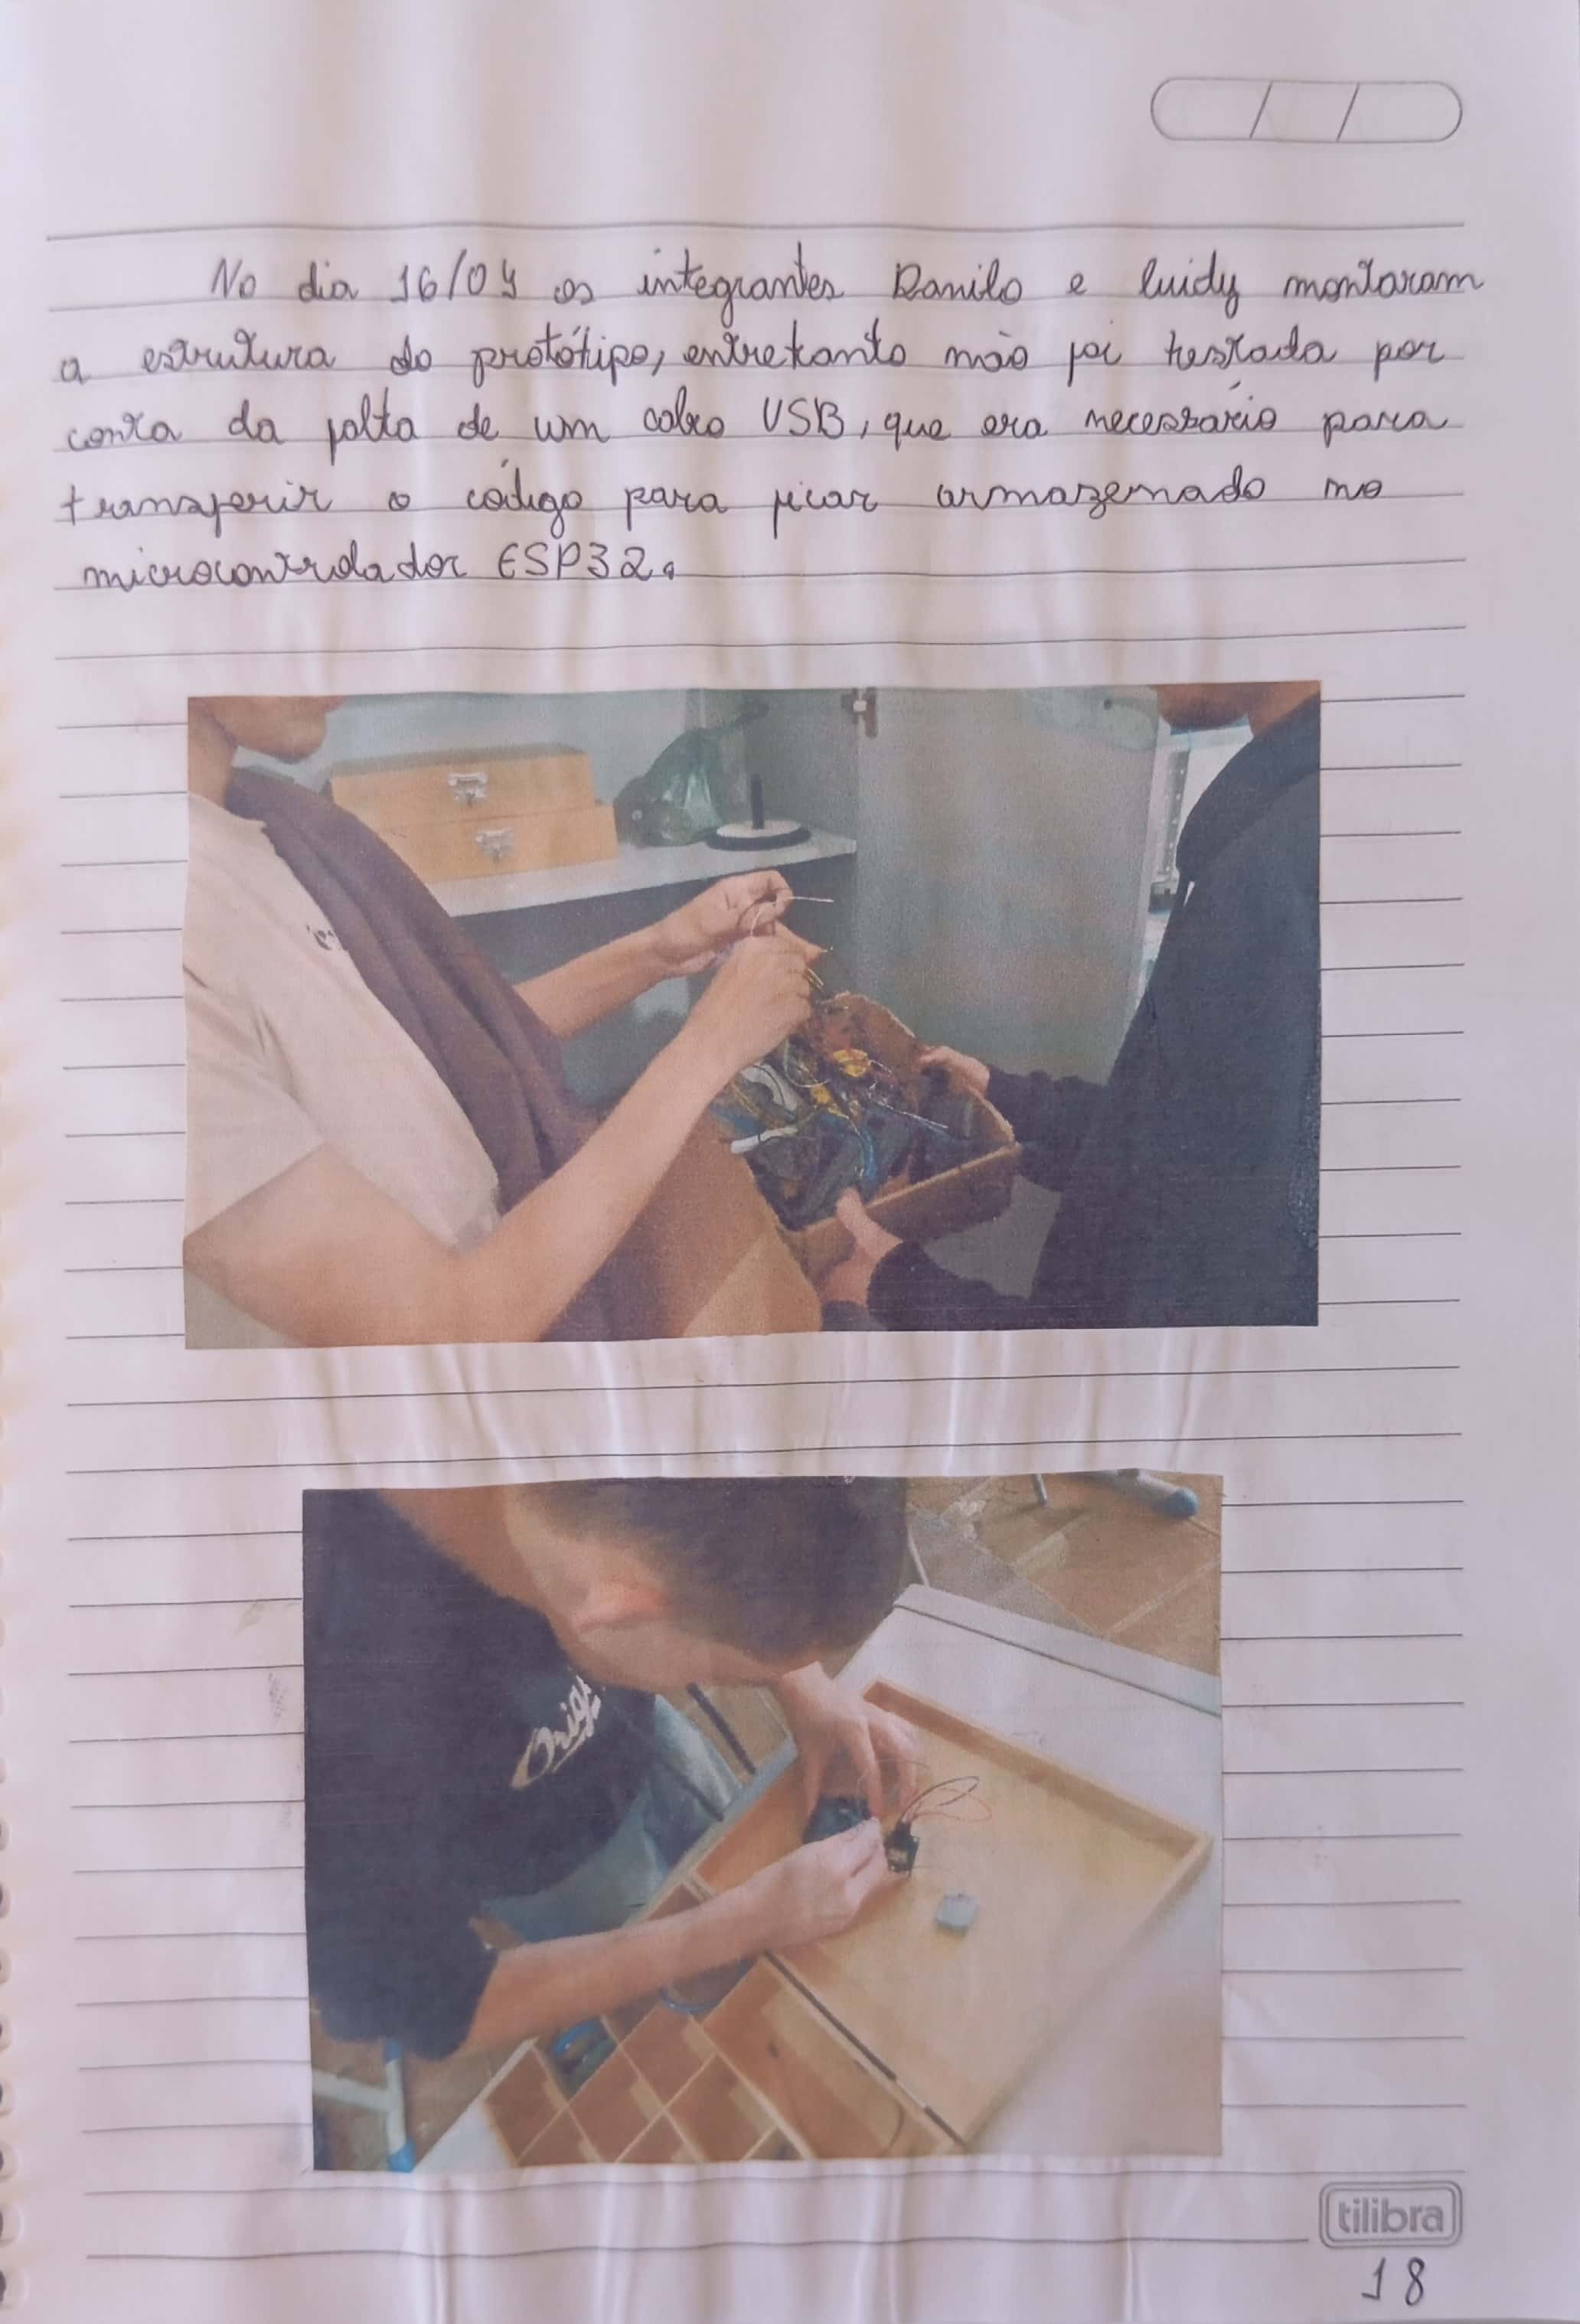 No dia 16/04 os integrantes Danilo e luidy montaram
a estrutura do protótipo, entretanto não foi testada por
conta da falta de um cabo USB, que era necessário para
transferir o código para ficar armazenado no
microcontrolador ESP32.
Orig
tilibra
18